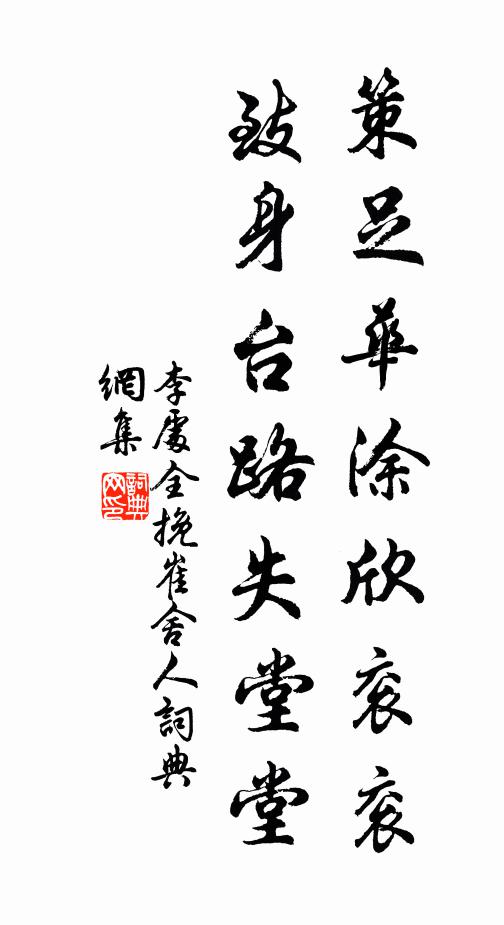 策足華涂欣衮衮
致身台路失堂堂
李處全挽崔舍人詞典
網集
詞典網印